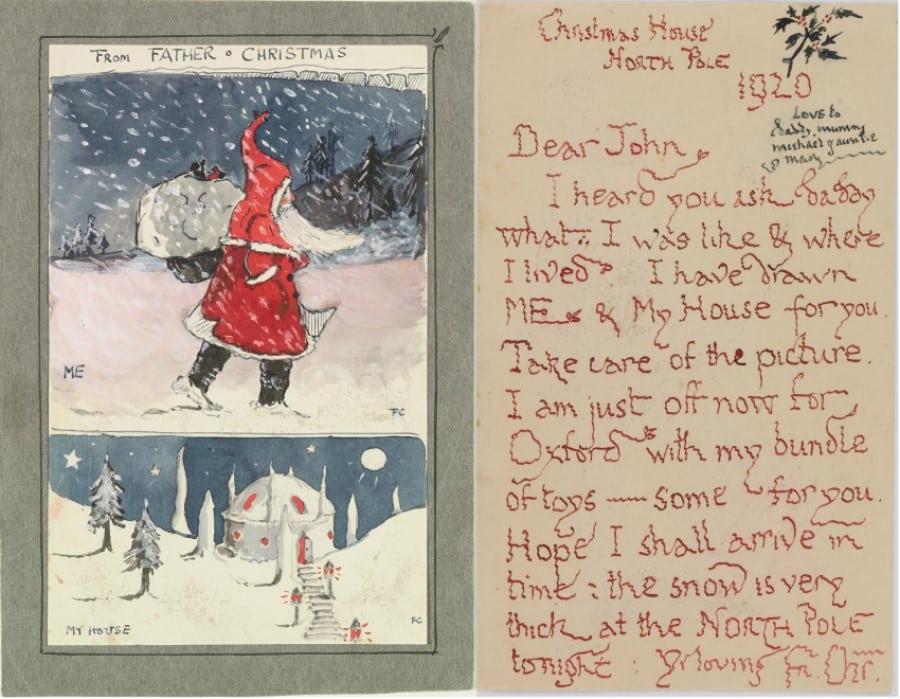 FROM FATHER CHRISTMAS
ME
FC
MY HOUSE
FC
Christmas House
NORTH POLE
1920
Love to
daddy, mummy
michael & auntie
& mary
Dear John
I heard you ask daddy
what I was like & where
I lived. I have drawn
ME & My House for you.
Take care of the picture.
I am just off now for
Oxford with my bundle
of toys — some for you.
Hope I shall arrive in
time : the snow is very
thick at the NORTH POLE
tonight : Yr loving Fr. Chr.